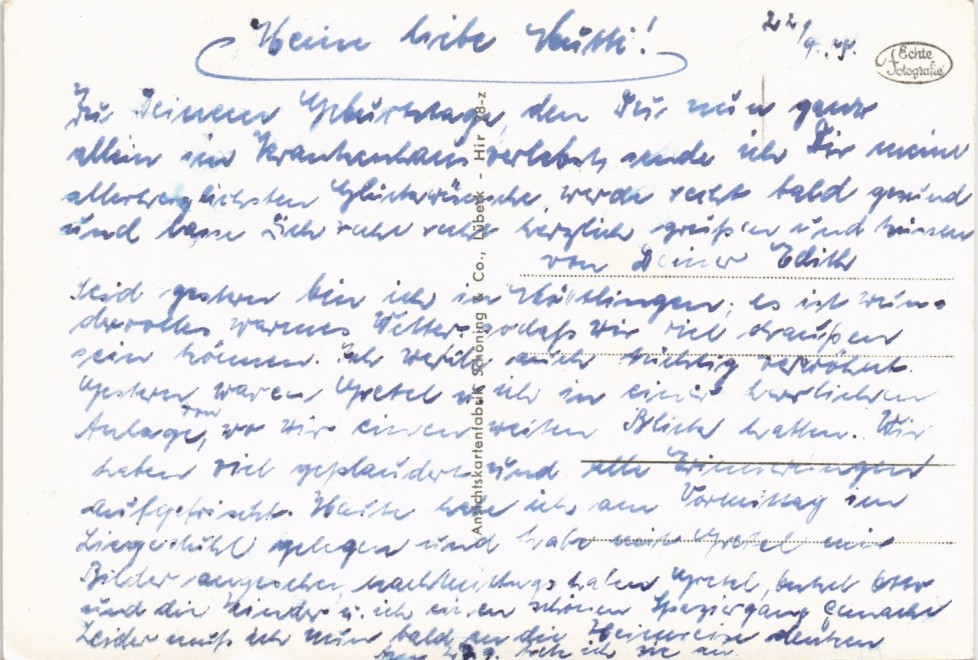 Meine liebe Mutti!
22/9.
Echte
Fotografie
Zu Deinem Geburtstage, den Du nun ganz
allein im Krankenhaus verlebst, sende ich Dir meine
allerherzlichsten Glückwünsche, werde recht bald gesund
und lasse Dich recht recht herzlich grüßen und küssen
von Deiner Edith
Seid gestern bin ich in; es ist wun-
dervolles warmes Wetter, sodaß wir viel draußen
sein können. Ich werde auch tüchtig verwöhnt.
Gestern waren Gretel u. ich in einer herrlichen
Anlage, von wo wir einen weiten Blick hatten. Wir
haben viel geplaudert und alte Erinnerungen
aufgefrischt. Heute habe ich am Vormittag im
Liegestuhl gelegen und habe mit Gretel
Bilder angesehen, nachmittags haben Gretel,
und die Kinder u. ich einen schönen Spaziergang gemacht
Leider muß ich nun bald an die Heimreise denken
ich sie an.
Ansichtskartenfabrik Schöning & Co., Lübeck - Hir 28-z